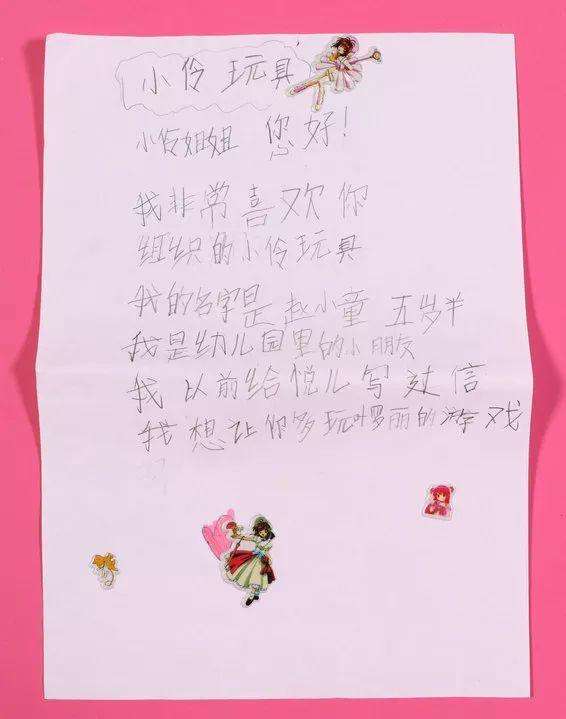 小伶玩具
小伶姐姐 您好！
我非常喜欢你
组织的小伶玩具
我的名字是赵小童 五岁半
我是幼儿园里的小朋友
我以前给悦儿写过信
我想让你多玩叶罗丽的游戏